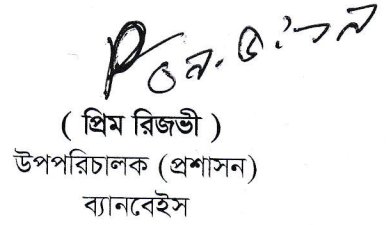 ( প্রিম রিজভী )
উপপরিচালক (প্রশাসন)
ব্যানবেইস